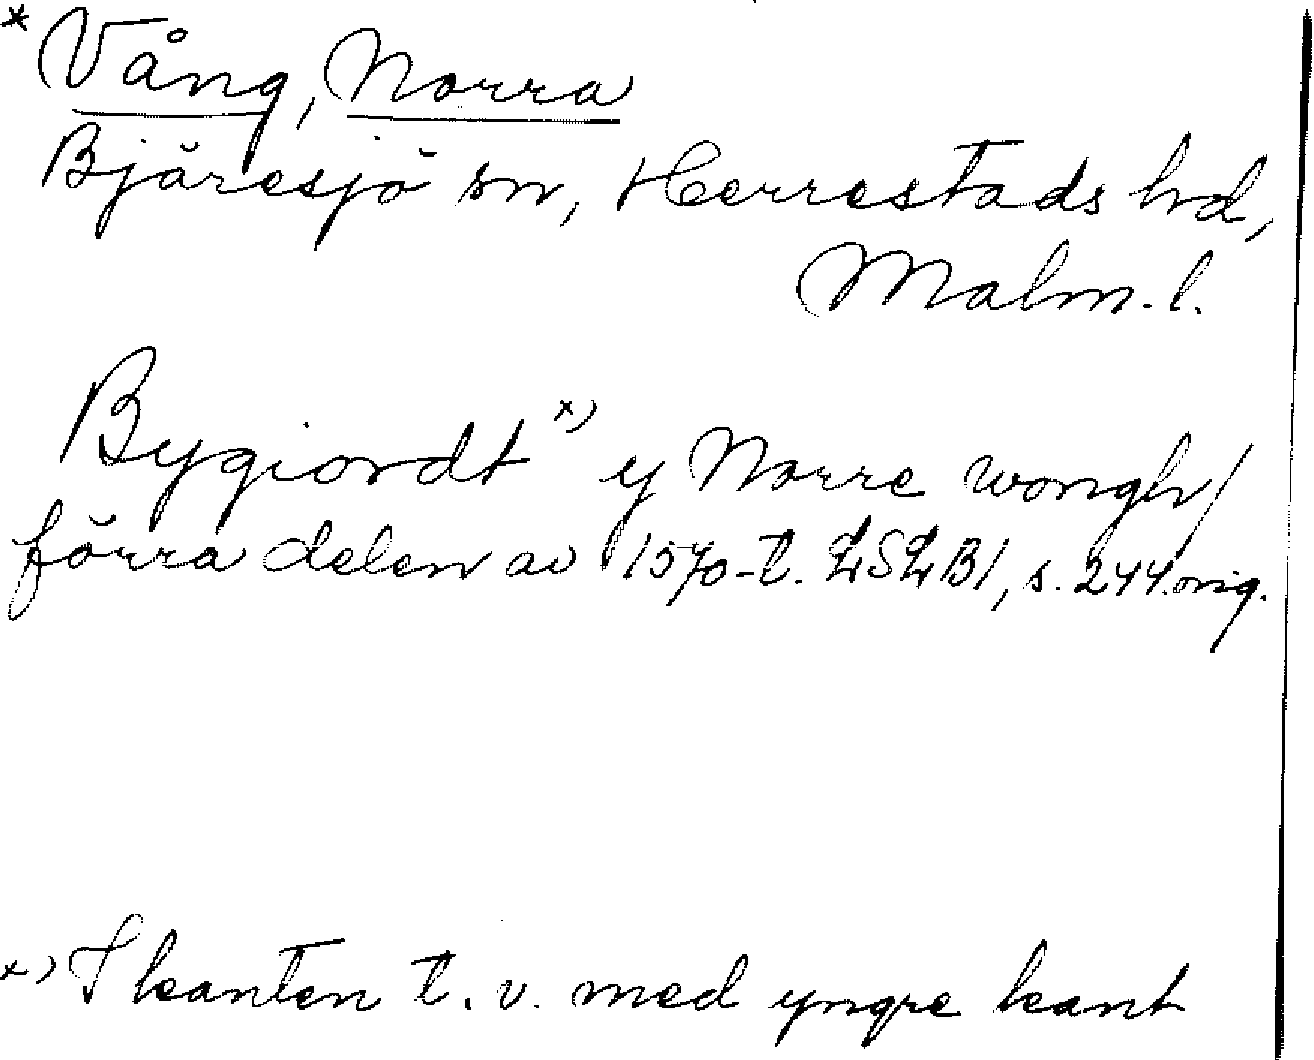 * Vång, Norra
Bjäresjö sn, Herrestads hd,
Malm. l.
Bygiordt x) y Norre wongh/
förra delen av 1570-t. LSLB1, s. 244 orig.
x) I kanten t. v. med yngre hant